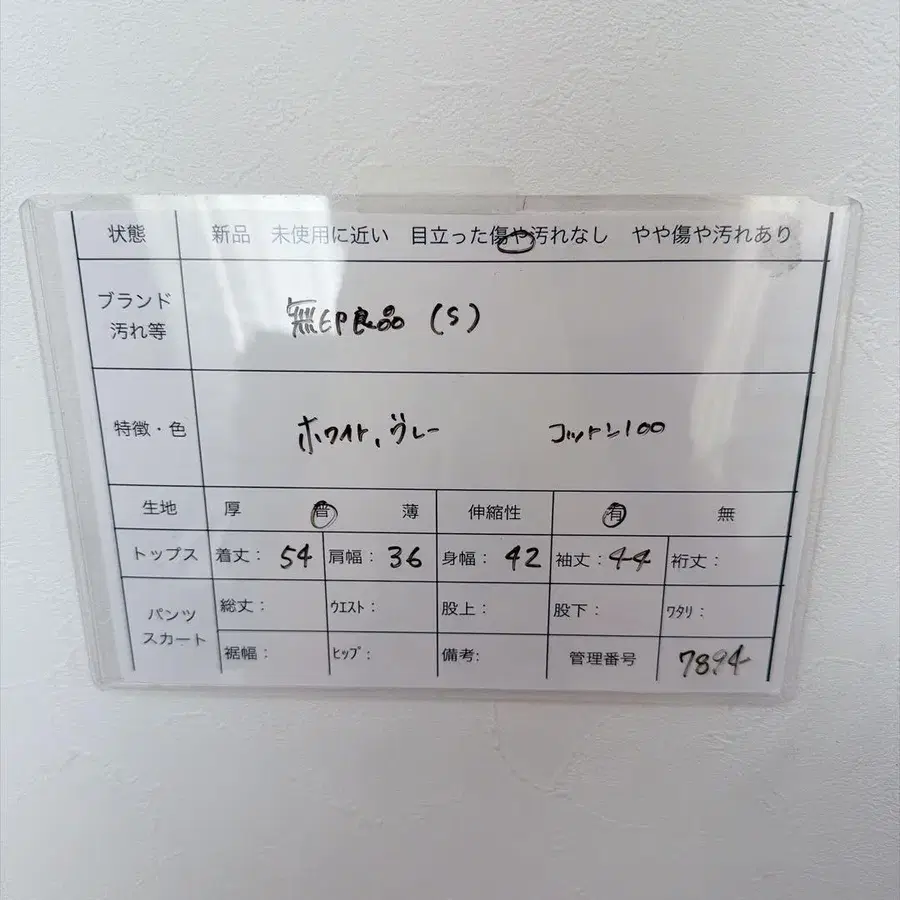 状態 新品 未使用に近い 目立った傷や汚れなし やや傷や汚れあり
ブランド
汚れ等
無印良品 (S)
特徴・色 ホワイト、グレー コットン100
生地 厚 普 薄 伸縮性 有 無
トップス 着丈: 54 肩幅: 36 身幅: 42 袖丈: 44 裄丈:
パンツ
スカート
総丈: ウエスト: 股上: 股下: ワタリ:
裾幅: ヒップ: 備考: 管理番号 7894